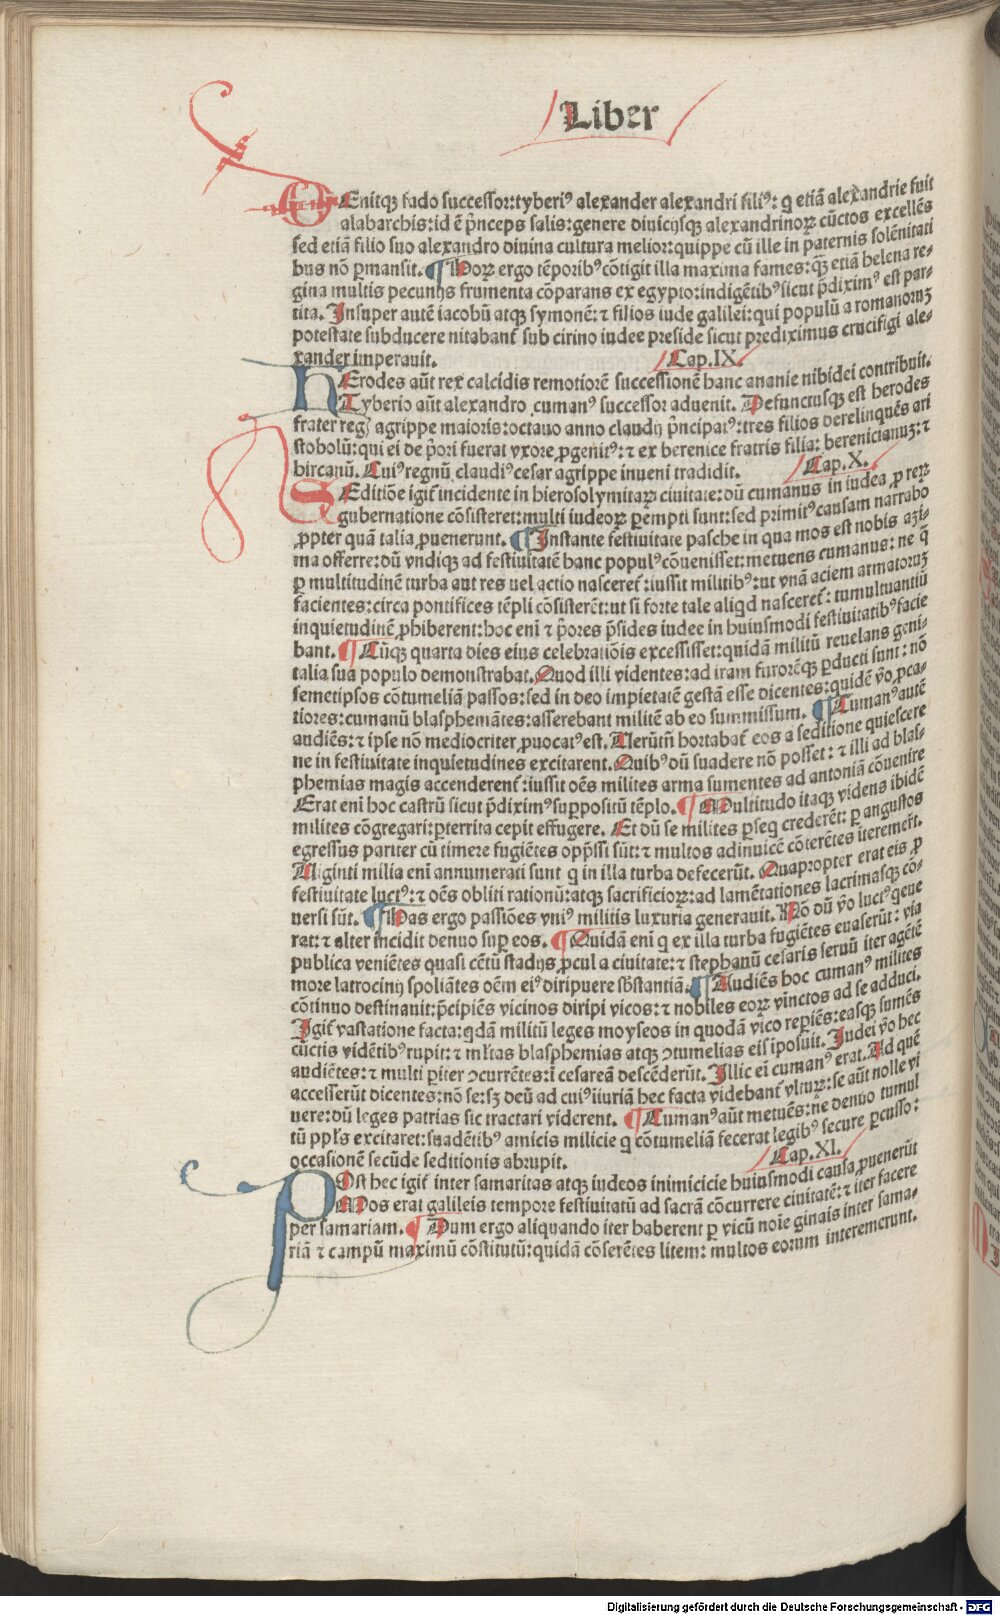 Liber
VEnitqꝫ fado successor:tyberiꝰ alexander alexandri filiꝰ: q etiã alexandrie fuit
alabarchis:id ē p̄nceps salis:genere diuicijsqꝫ alexandrinoꝝ cūctos excellēs
sed etiã filio suo alexandro diuina cultura melior:quippe cū ille in paternis solēnitati
bus nō ꝑmansit. ¶ Horꝫ ergo tēporibꝰ cōtigit illa maxima fames:quā etiã helena re-
gina multis pecunijs frumenta cōparans ex egypto:indigētibꝰ sicut p̄diximꝰ est par-
tita. Insuper autē iacobū atqꝫ symonē: ⁊ filios iude galilei:qui populū a romanoꝝ
potestate subducere nitabant̄ sub cirino iudee preside sicut prediximus crucifigi ale-
xander imperauit. Cap.IX.
HErodes aūt rex calcidis remotiorē successionē hanc ananie nibidei contribuit.
Tyberio aūt alexandro cumanꝰ successor aduenit. Defunctusqꝫ est herodes
frater regꝭ agrippe maioris:octauo anno claudij p̄ncipatꝰ:tres filios derelinquēs ari
stobolū:qui ei de p̄ori fuerat vxore ꝓgenitꝰ: ⁊ ex berenice fratris filia: berenicianuꝫ: ⁊
hircanū. Cuiꝰ regnū claudiꝰ cesar agrippe iuueni tradidit. Cap.X.
SEditiōe igit̄ incidente in hierosolymitaꝝ ciuitate:dū cumanus in iudea ꝓ reꝝ
gubernatione cōsisteret:multi iudeoꝝ ꝑempti sunt:sed primitꝰ causam narrabo
ꝓpter quã talia ꝓuenerunt. ¶ Instante festiuitate pasche in qua mos est nobis azi-
ma offerre:dū vndiqꝫ ad festiuitatē hanc populꝰ cōuenisset:metuens cumanus: ne q̄
ꝑ multitudinē turba aut res uel actio nasceret̄:iussit militibꝰ:ut vnã aciem armatoꝝ
facientes:circa pontifices tēpli cōsisterēt:ut si forte tale aliqd nasceret̄: tumultuantiū
inquietudinē ꝓhiberent:hoc eni ⁊ p̄ores p̄sides iudee in huiusmodi festiuitatibꝰ facie
bant. ¶ Cūqꝫ quarta dies eius celebratiōis excessisset:quidã militū reuelans geni-
talia sua populo demonstrabat. Quod illi videntes:ad iram furorēqꝫ ꝑducti sunt: nō
semetipsos cōtumeliã passos:sed in deo impietatē gestã esse dicentes:quidē v̄o ꝓca-
tiores:cumanū blasphemãtes:asserebant militē ab eo summissum. ¶ Cumanꝰ autē
audiēs: ⁊ ipse nō mediocriter ꝓuocatꝰ est. Uerūtn̄ hortabat̄ eos a seditione quiescere
ne in festiuitate inquietudines excitarent. Quibꝰ dū suadere nō posset: ⁊ illi ad blas-
phemias magis accenderent̄:iussit oēs milites arma sumentes ad antoniã cōuenire
Erat eni hoc castrū sicut p̄diximꝰ suppositū tēplo. ¶ Multitudo itaqꝫ videns ibidē
milites cōgregari:ꝑterrita cepit effugere. Et dū se milites ꝑseq crederēt: ꝑ angustos
egressus pariter cū timere fugiētes opp̄ssi sūt: ⁊ multos adinuicē cōterētes iteremer̄t.
Uiginti milia eni annumerati sunt q in illa turba defecerūt. Quapropter erat eis ꝓ
festiuitate luctꝰ: ⁊ oēs obliti rationū:atqꝫ sacrificioꝝ:ad lamētationes lacrimasqꝫ cō-
uersi sūt. ¶ Has ergo passiōes vniꝰ militis luxuria generauit. Nō dū v̄o luctꝰ queue
rat: ⁊ alter incidit denuo suꝑ eos. ¶ Quidã eni q ex illa turba fugiētes euaserūt: via
publica veniētes quasi cētū stadijs ꝓcul a ciuitate: ⁊ stephanū cesaris seruū iter agētē
more latrocinij spoliãtes oēm eiꝰ diripuere sb̄stantiã. ¶ Audiēs hoc cumanꝰ milites
cōtinuo destinauit:p̄cipiēs vicinos diripi vicos: ⁊ nobiles eoꝝ vinctos ad se adduci.
Igit̄ vastatione facta:qdã militū leges moyseos in quodã vico reꝑiēs:easqꝫ sumēs
cūctis vidētibꝰ rupit: ⁊ ml̄tas blasphemias atqꝫ ꝯtumelias eis iposuit. Iudei v̄o hec
audiētes: ⁊ multi ꝑiter ꝯcurrētes:i cesareã descēderūt. Illic ei cumanꝰ erat. Ad quē
accesserūt dicentes:nō se:sꝫ deū ad cuiꝰ iiuriã hec facta videbant̄ vlturꝫ:se aūt nolle vi
uere:dū leges patrias sic tractari viderent. ¶ Cumanꝰ aūt metuēs:ne denuo tumul
tū ppl̄s excitaret:suadētibꝰ amicis milicie q cōtumeliã fecerat legibꝰ secure ꝑcusso:
occasionē secūde seditionis abrupit. Cap.XI.
POst hec igit̄ inter samaritas atqꝫ iudeos inimicicie huiusmodi causa ꝓuenerūt
Mos erat galileis tempore festiuitatū ad sacrã cōcurrere ciuitatē: ⁊ iter facere
per samariam. ¶ Dum ergo aliquando iter haberent ꝑ vicū noīe ginais inter sama-
riã ⁊ campū maximū cōstitutū:quidã cōserētes litem: multos eorum interemerunt.
Digitalisierung gefördert durch die Deutsche Forschungsgemeinschaft - DFG